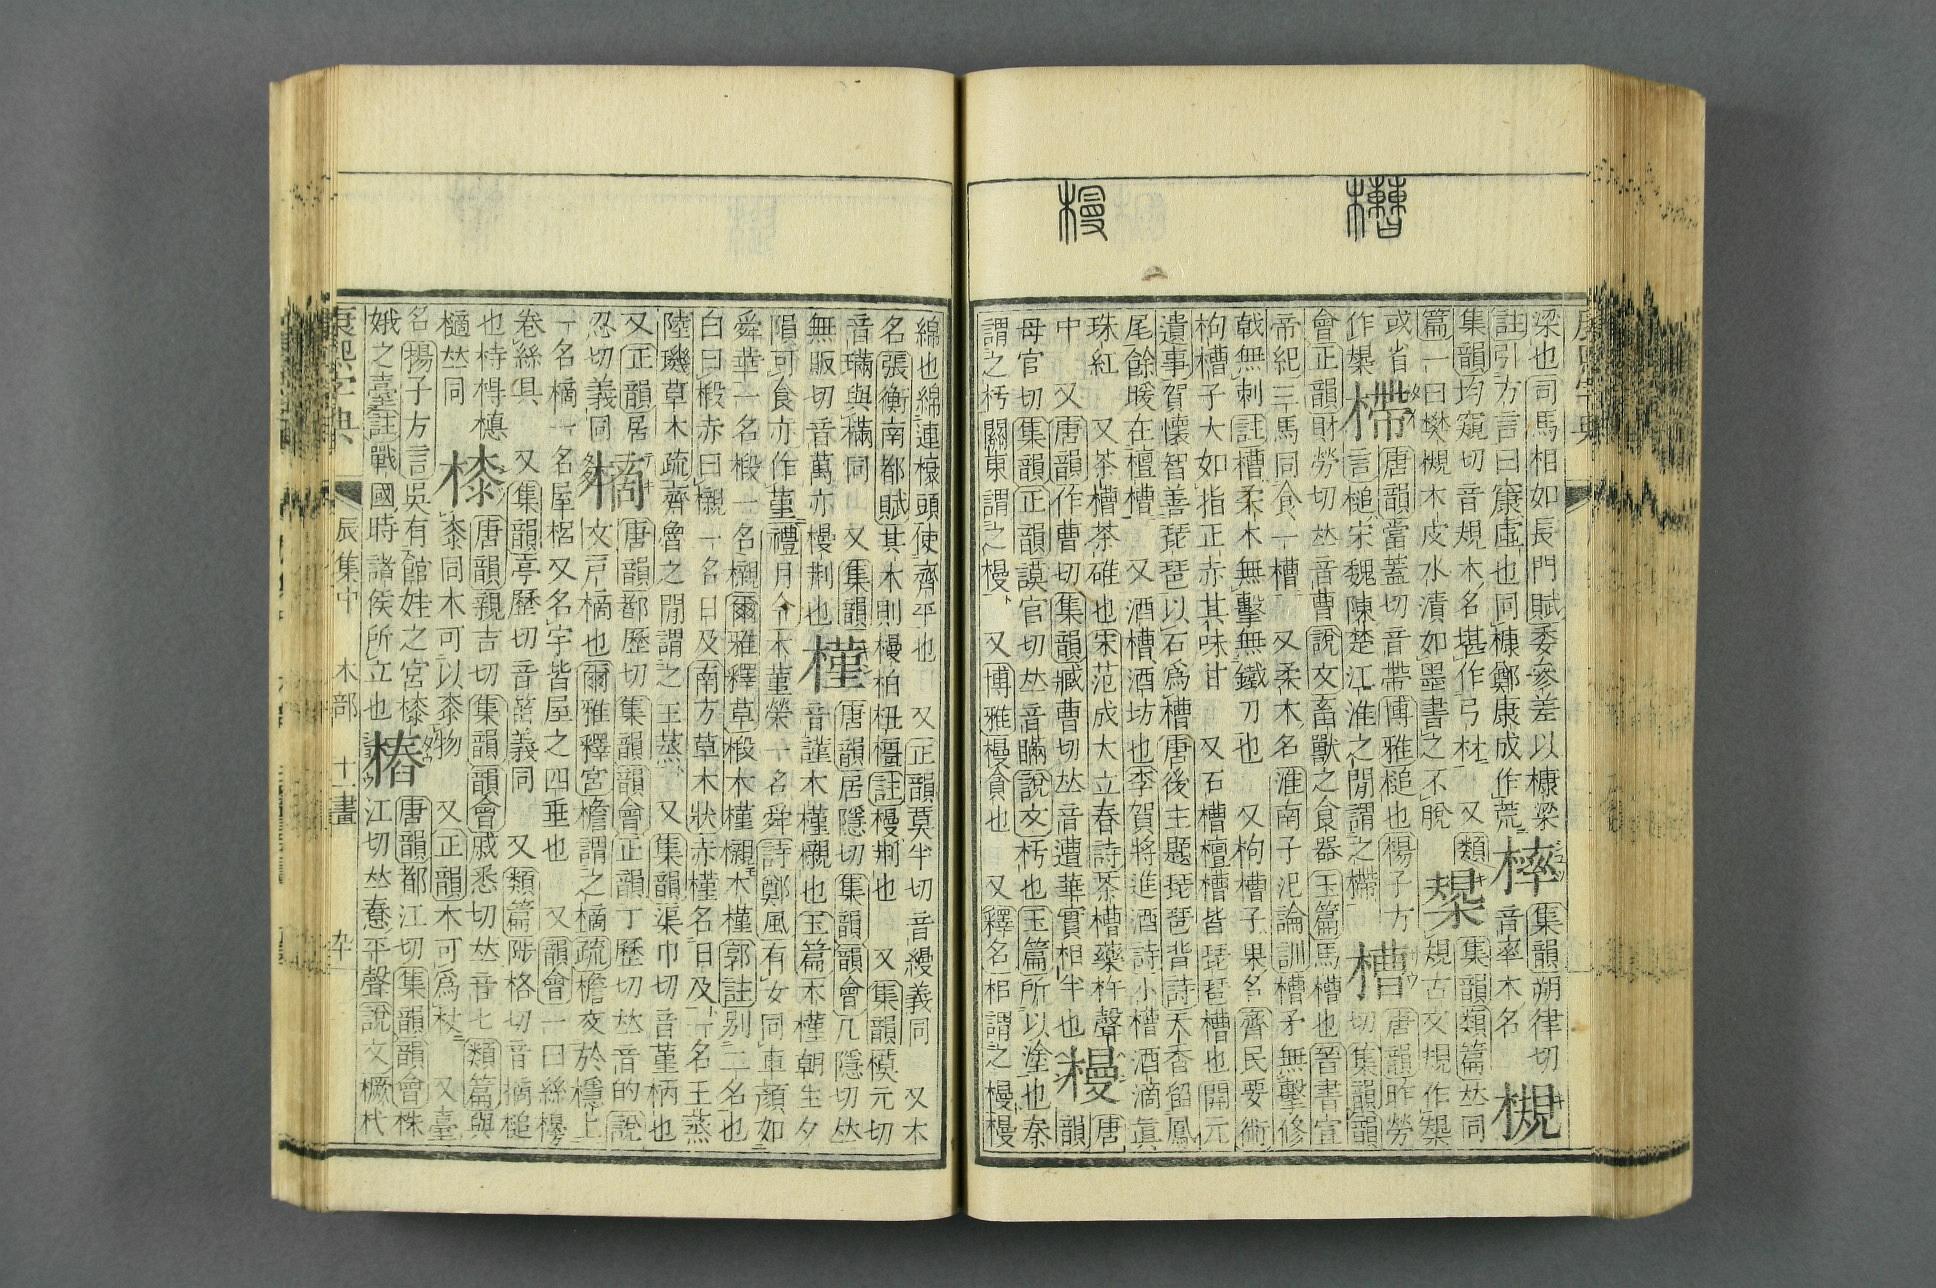 梁也司馬相如長門賦委參差以槺梁
註引方言曰㝩虛也同槺鄭康成作荒
樑
集韻朔律切
音率木名
槻
集韻均窺切音規木名堪作弓材 又類
篇一曰樊槻木皮水漬如墨書之不脫
槼
集韻類篇𠀤同
規古文䂓作槼
或省
作榘
㯂
唐韻當蓋切音帶博雅槌也楊子方
言槌宋魏陳楚江淮之閒謂之㯂
槽
唐韻昨勞
切集韻韻
會正韻財勞切𠀤音曹說文畜獸之食器玉篇馬槽也晉書宣
帝紀三馬同食一槽 又柔木名淮南子汜論訓槽矛無擊修
戟無刺註槽柔木無擊無鐵刀也 又枸槽子果名齊民要術
枸槽子大如指正赤其味甘 又石槽檀槽皆琵琶槽也開元
遺事賀懷智善琵琶以石爲槽唐後主題琵琶背詩天香留鳳
尾餘暖在檀槽 又酒槽酒坊也李賀將進酒詩小槽酒滴眞
珠紅 又茶槽茶碓也宋范成大立春詩茶槽藥杵聲
中 又唐韻作曹切集韻臧曹切𠀤音遭華實相半也
槾
唐
韻
母官切集韻正韻謨官切𠀤音瞞說文杇也玉篇所以塗也秦
謂之杇關東謂之槾 又博雅槾貪也 又釋名梠謂之槾槾
綿也綿連榱頭使齊平也 又正韻莫半切音縵義同 又木
名張衡南都賦其木則槾柏杻橿註槾荆也 又集韻模元切
音璊與樠同 又集韻
無販切音萬亦槾荆也
槿
唐韻居隱切集韻韻會几隱切𠀤
音謹木槿櫬也玉篇木槿朝生夕
隕可食亦作堇禮月令木堇榮 一名舜詩鄭風有女同車顏如
舜華一名椴一名櫬爾雅釋草椴木槿櫬木槿郭註別二名也
白曰椴赤曰櫬 一名日及南方草木狀赤槿名日及一名王蒸
陸璣草木疏齊魯之閒謂之王蒸 又集韻渠巾切音堇柄也
又正韻居
忍切義同
樀
唐韻都歷切集韻韻會正韻丁歷切𠀤音的說
文戸樀也爾雅釋宮檐謂之樀疏檐交於檼上
一名樀一名屋梠又名宇皆屋之四垂也 又韻會一曰絲㯕
卷絲具 又集韻亭歷切音笛義同 又類篇陟格切音摘槌
也㭙㭒櫶
樀𠀤同
榛
唐韻親吉切集韻韻會戚悉切𠀤音七類篇與
桼同木可以桼物 又正韻木可爲杖 又臺
名揚子方言吳有館娃之宮榛
娥之臺註戰國時諸侯所立也
樁
唐韻都江切集韻韻會株
江切𠀤惷平聲說文橛杙
康熙字典
辰集中 木部 十一畫